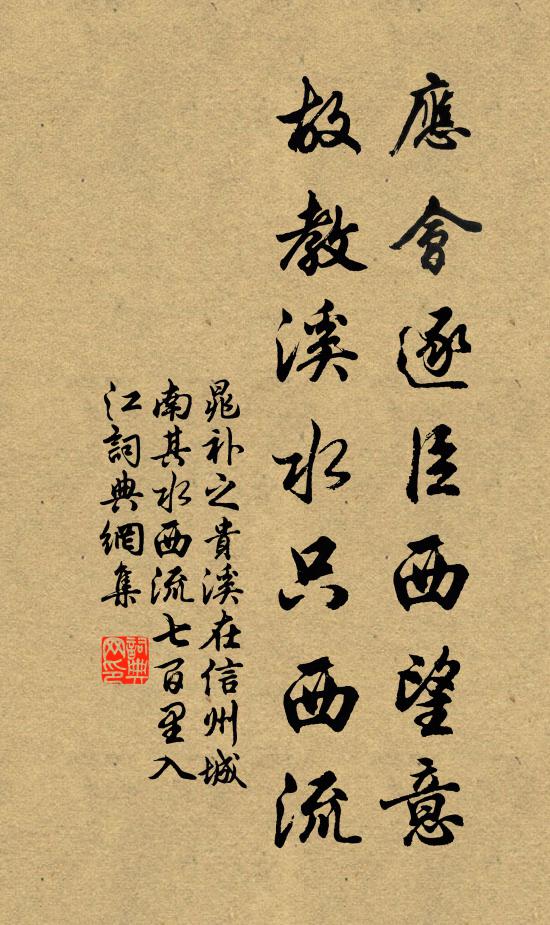 應會逐臣西望意
故教溪水只西流
晁补之貴溪在信州城
南其水西流七百里入
江詞典網集
詞典网印